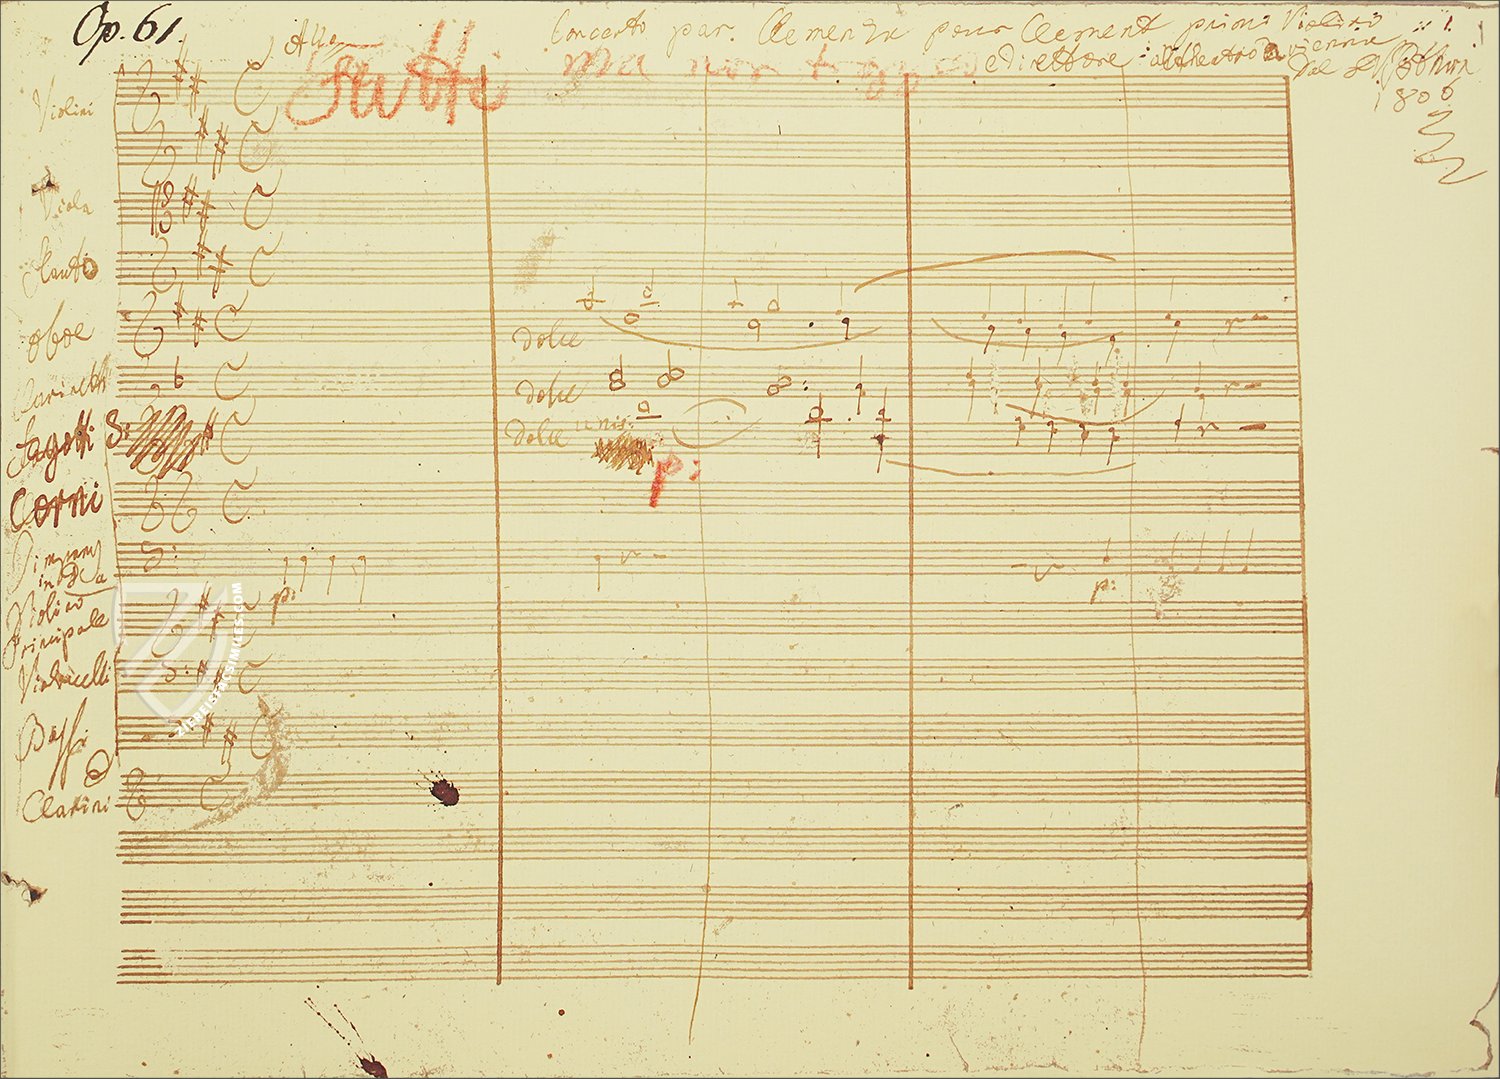 Op. 61.
Concerto par Clemenza pour Clement primo Violino
Allo
e Direttore al theatro a vienna
Dal L. v. Bthvn
1806
Tutti
ma non troppo
Violini
Viola
Flauto
oboe
dolce
Clarinetti
dolce
Fagotti
dolce unis:
p:
Corni
Timpany
in D A
p:
p:
Violino
Principale
Violoncelli
Bassi
Clarini
ZIEREISFACSIMILES.COM